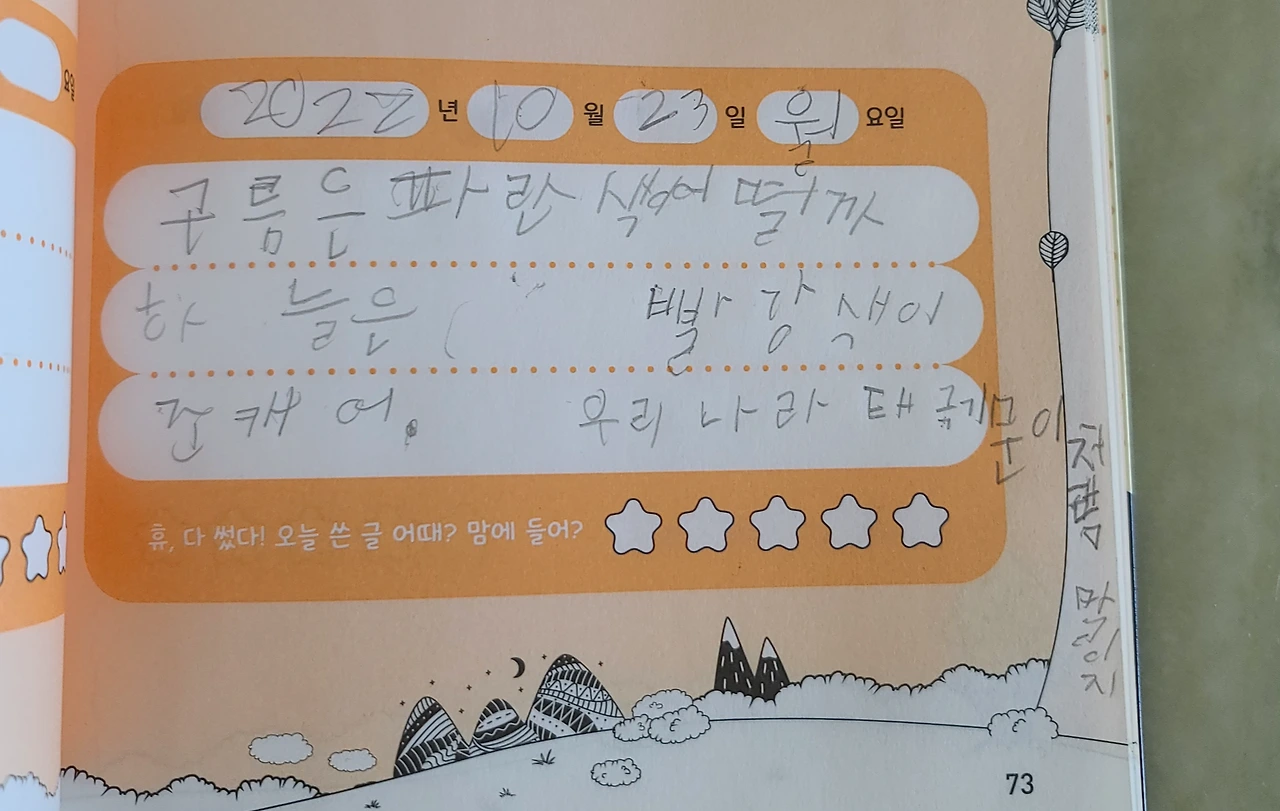 요일
2022 년 10 월 23 일 월 요일
구름은 파란색이 떨까
하늘은 ( 빨강색이
존캐어. 우리나라 태극기문이
처쩜 말이지
휴, 다 썼다! 오늘 쓴 글 어때? 맘에 들어?
73